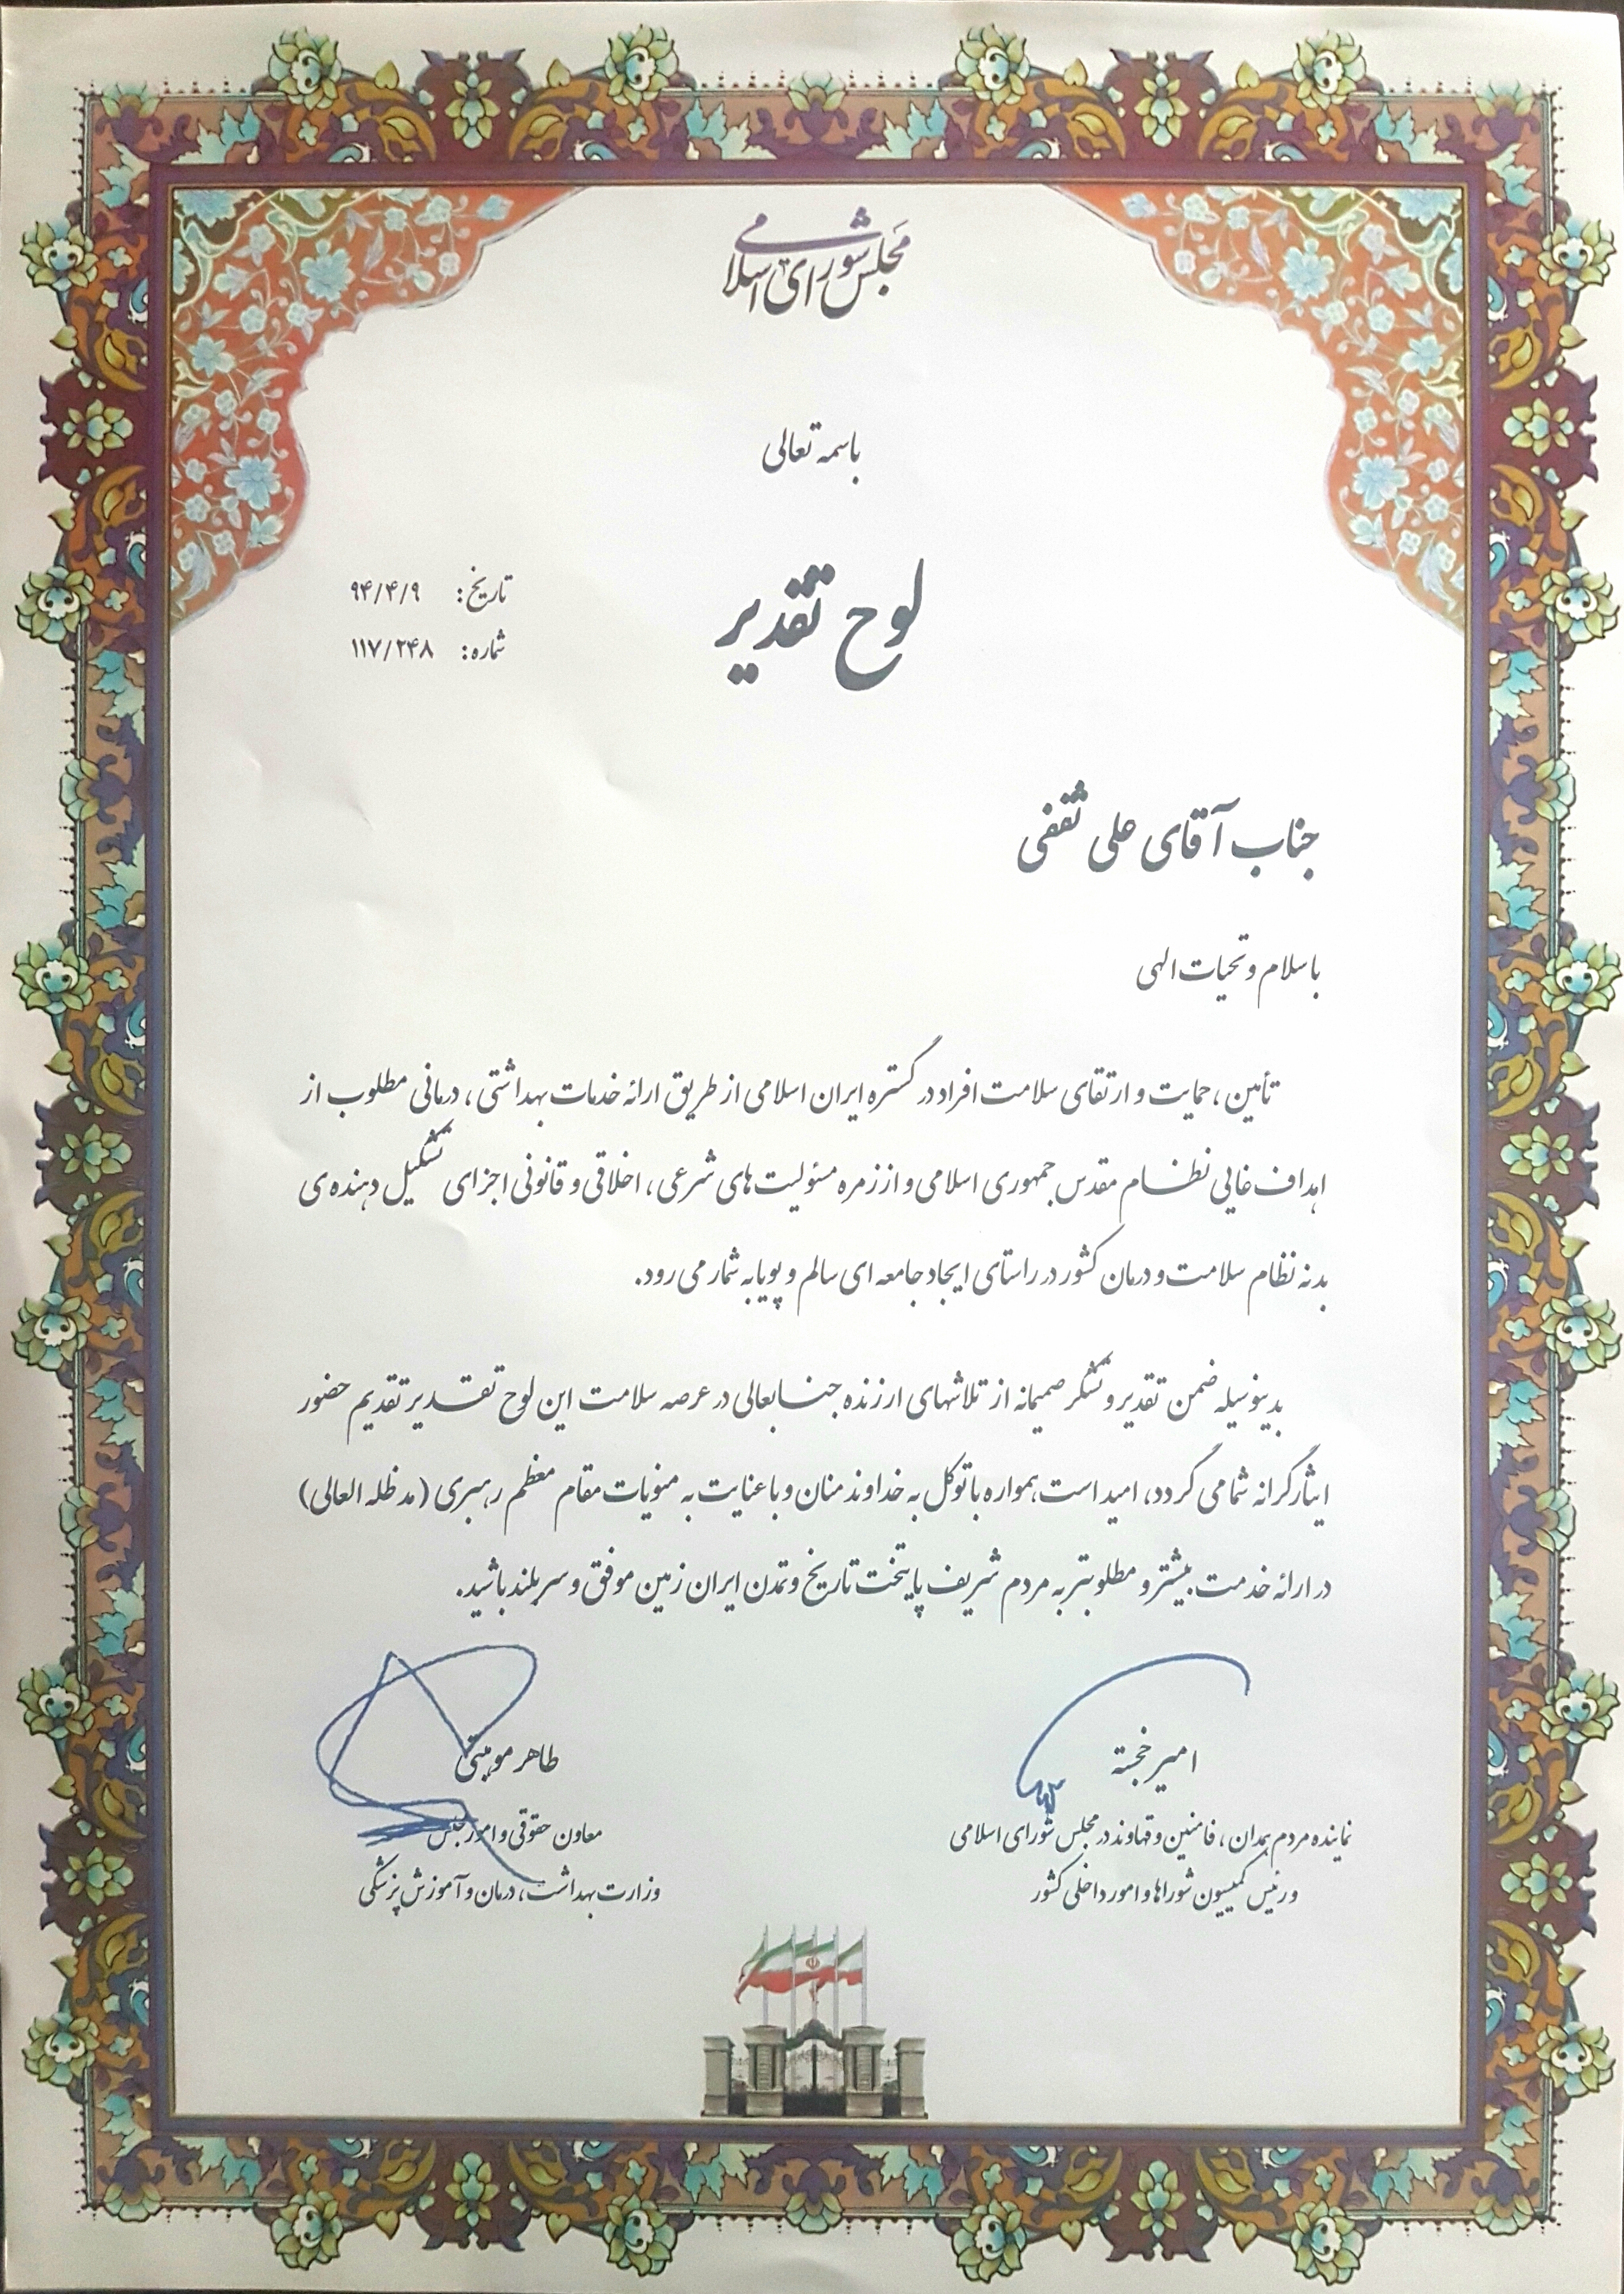 مجلس شورای اسلامی
باسمه تعالی
لوح تقدیر
تاریخ: ۹۴/۴/۹
شماره: ۱۱۷/۲۴۸
جناب آقای علی ثقفی
باسلام و تحیات الهی
تأمین، حمایت و ارتقای سلامت افراد در گستره ایران اسلامی از طریق ارائه خدمات بهداشتی، درمانی مطلوب از
اهداف غایی نظام مقدس جمهوری اسلامی و از زمره مسئولیت های شرعی، اخلاقی و قانونی اجزای تشکیل دهنده ی
بدنه نظام سلامت و درمان کشور در راستای ایجاد جامعه ای سالم و پویا به شمار می رود.
بدینوسیله ضمن تقدیر و تشکر صمیمانه از تلاشهای ارزنده جنابعالی در عرصه سلامت این لوح تقدیر تقدیم حضور
ایثارگرانه شما می گردد، امید است همواره با توکل به خداوند منان و با عنایت به منویات مقام معظم رهبری (مدظله العالی)
در ارائه خدمت بیشتر و مطلوبتر به مردم شریف پایتخت تاریخ و تمدن ایران زمین موفق و سربلند باشید.
امیر خجسته
نماینده مردم همدان، فامنین و قهاوند در مجلس شورای اسلامی
و رئیس کمیسیون شوراها و امور داخلی کشور
طاهر موهبتی
معاون حقوقی و امور مجلس
وزارت بهداشت، درمان و آموزش پزشکی